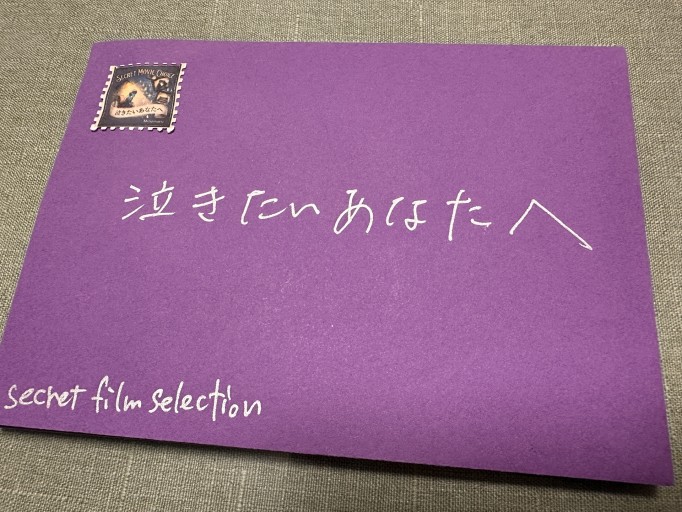 SECRET MOVIE CHOICE
泣きたいあなたへ
泣きたいあなたへ
secret film selection